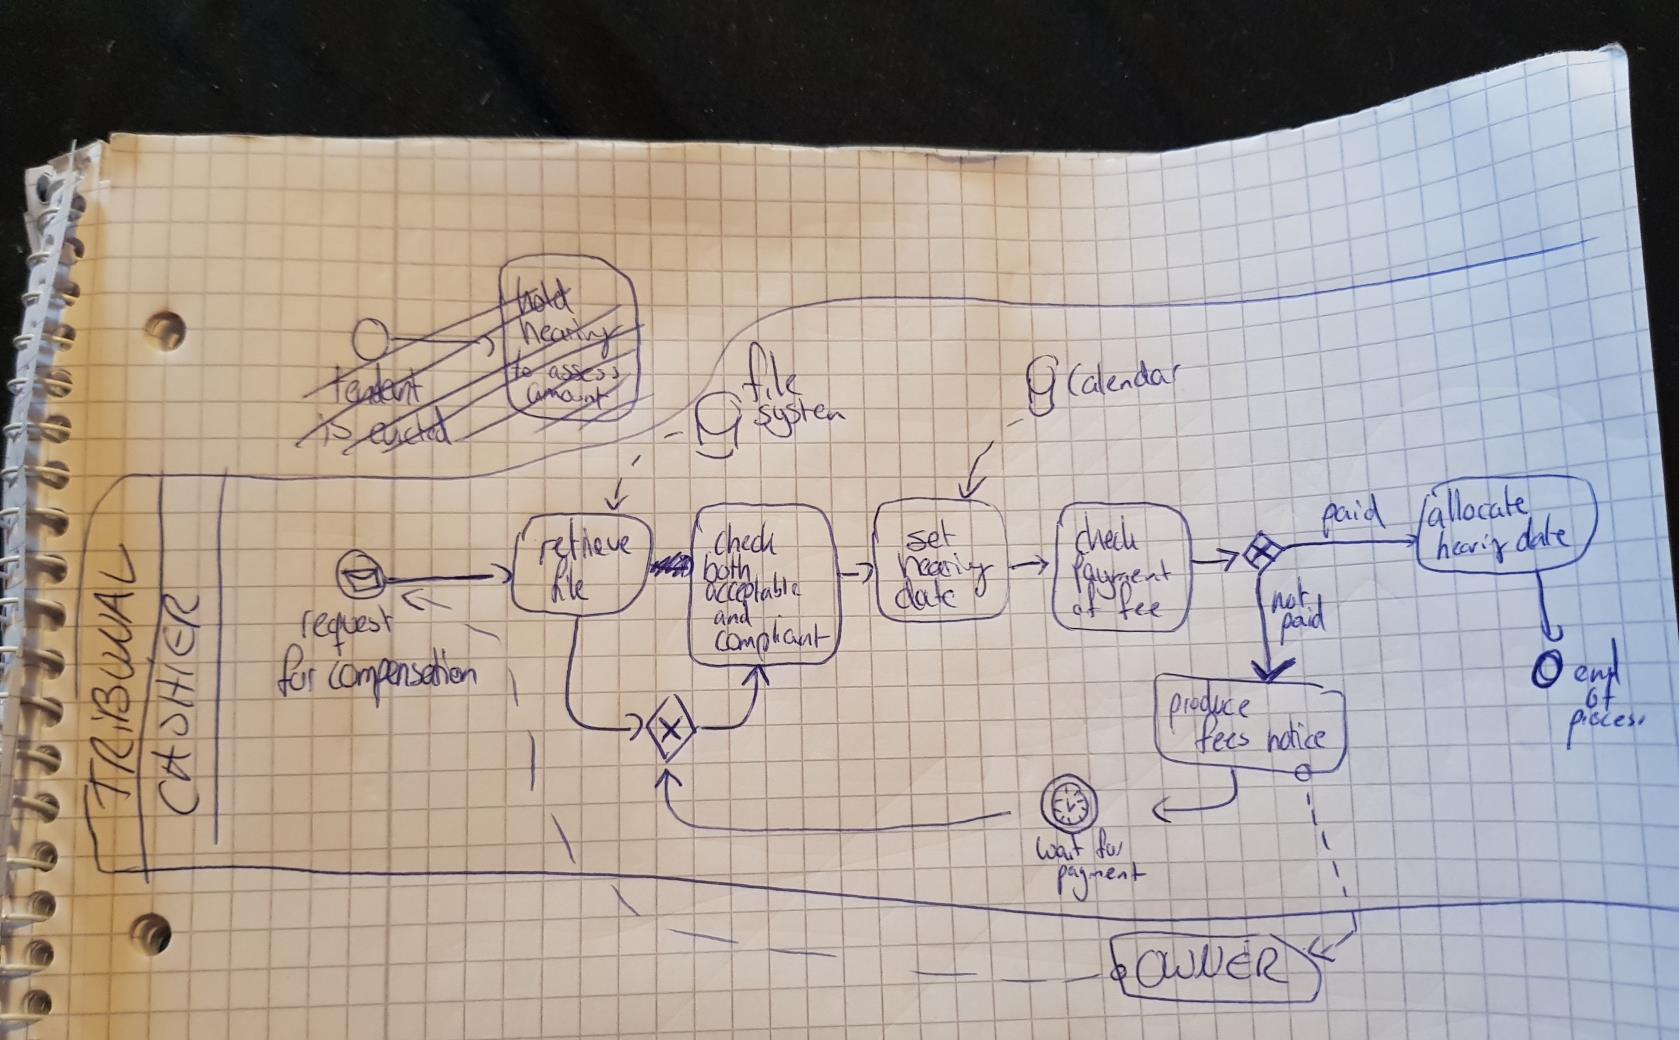 hold
hearing
to assess
amount
tenant
is evicted
file
system
Calendar
TRIBUNAL
CASHIER
request
for compensation
retrieve
file
check
both
acceptable
and
compliant
set
hearing
date
check
payment
of fee
paid
not
paid
allocate
hearing date
end
of
process
produce
fees notice
wait for
payment
OWNER